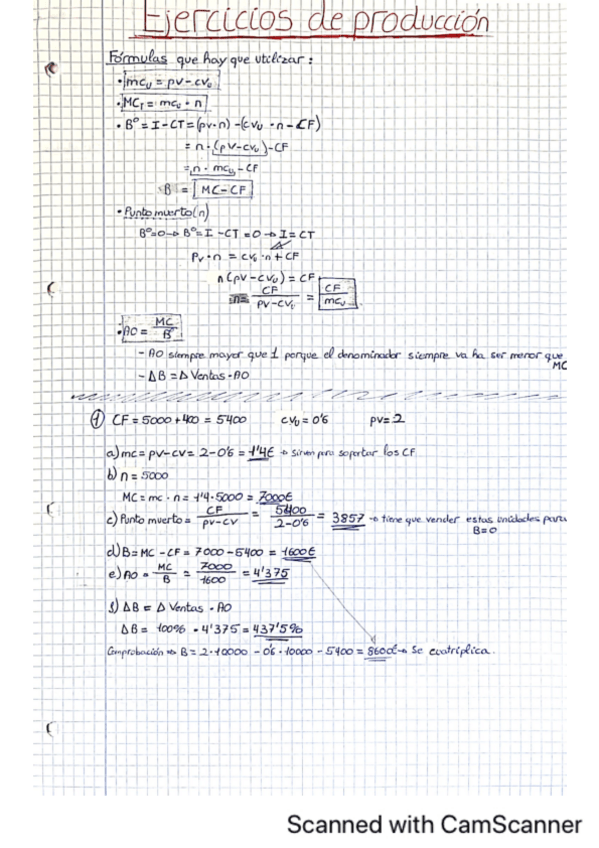 Ejercicios de producción
Fórmulas que hay que utilizar:
• mcu = pv - cvu
• MCT = mcu · n
• Bº = I - CT = (pv·n) - (cvu · n - CF)
= n · (pv - cvu) - CF
= n · mcu - CF
B = MC - CF
• Punto muerto (n)
Bº=0 → Bº = I - CT = 0 → I = CT
Pv · n = cvu · n + CF
n (pv - cvu) = CF
n = CF / pv - cvu = CF / mcu
• AO = MC / Bº
- AO siempre mayor que 1 porque el denominador siempre va ha ser menor que MC
- ΔB = Δ Ventas · AO
① CF = 5000 + 400 = 5400 cvu = 0'6 pv = 2
a) mc = pv - cv = 2 - 0'6 = 1'4€ → sirven para soportar los CF
b) n = 5000
MC = mc · n = 1'4 · 5000 = 7000€
c) Punto muerto = CF / pv - cv = 5400 / 2 - 0'6 = 3857 → tiene que vender estas unidades para B=0
d) B = MC - CF = 7000 - 5400 = 1600€
e) AO = MC / B = 7000 / 1600 = 4'375
f) ΔB = Δ Ventas · AO
ΔB = 100% · 4'375 = 437'5%
Comprobación ⇒ B = 2 · 10000 - 0'6 · 10000 - 5400 = 8600 → Se cuatriplica.
Scanned with CamScanner